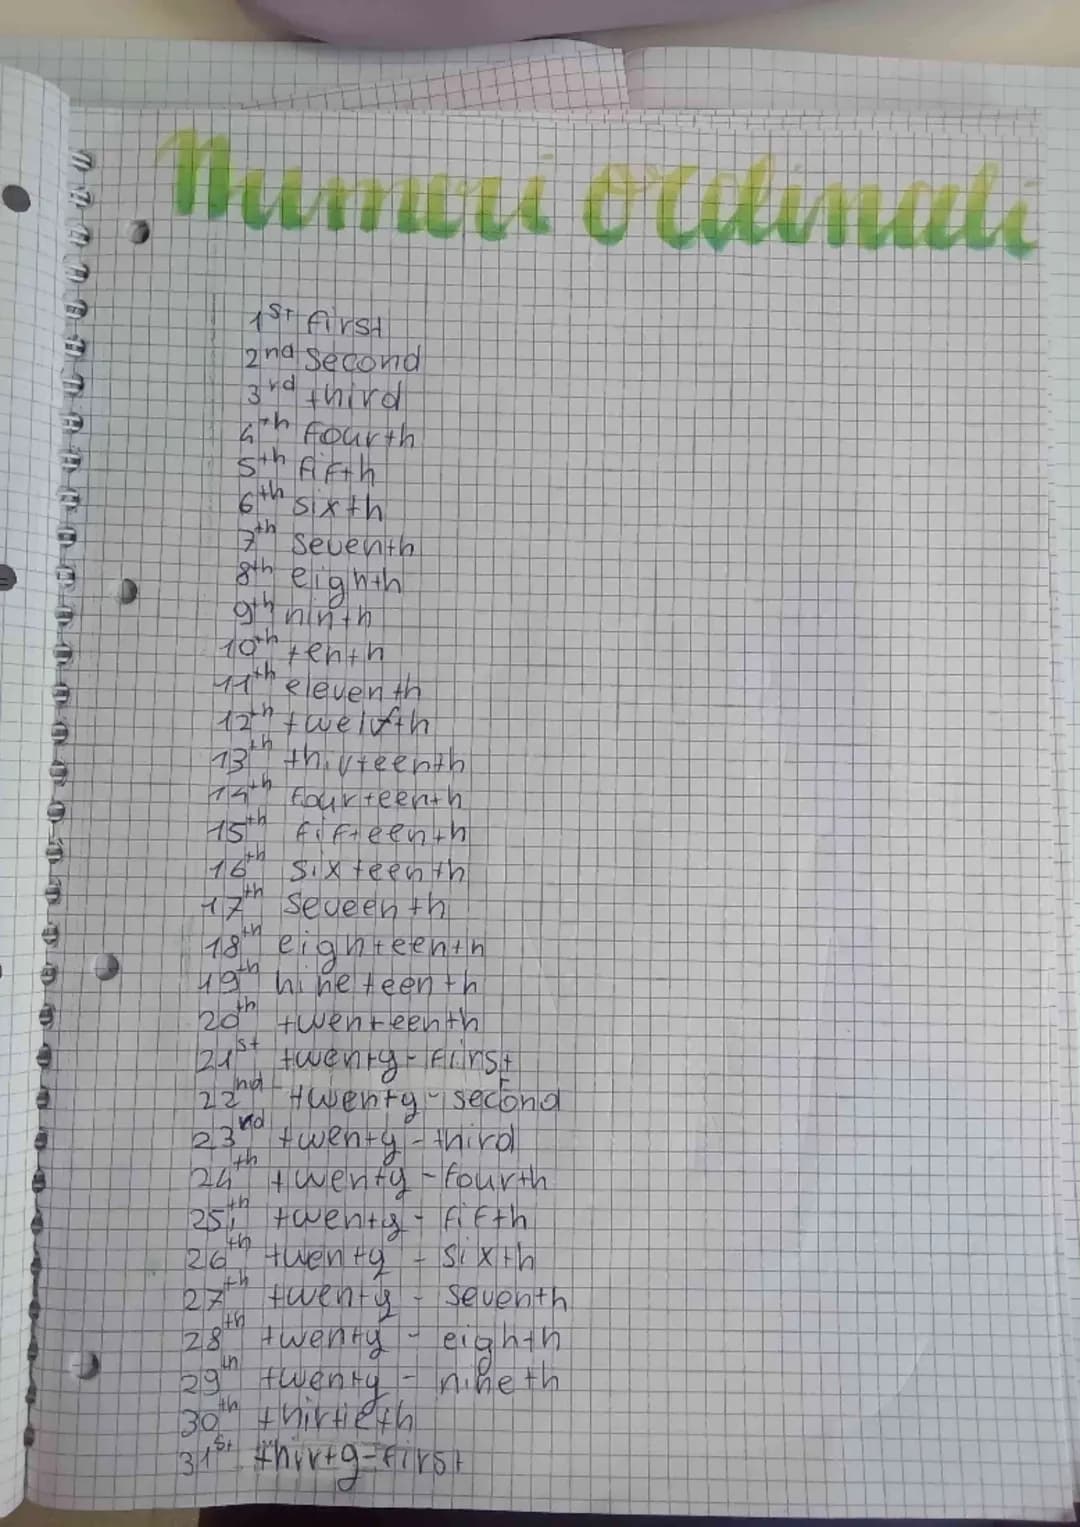 Numeri ordinali
1st first
2nd second
3rd third
4th fourth
5th fifth
6th sixth
7th seventh
8th eighth
9th ninth
10th tenth
11th eleventh
12th twelfth
13th thirteenth
14th fourteenth
15th fifteenth
16th sixteenth
17th seveenth
18th eighteenth
19th nineteenth
20th twenteenth
21st twenty-first
22nd twenty-second
23rd twenty-third
24th twenty-fourth
25th twenty-fifth
26th twenty-sixth
27th twenty-seventh
28th twenty-eighth
29th twenty-nineth
30th thirtieth
31st thirty-first